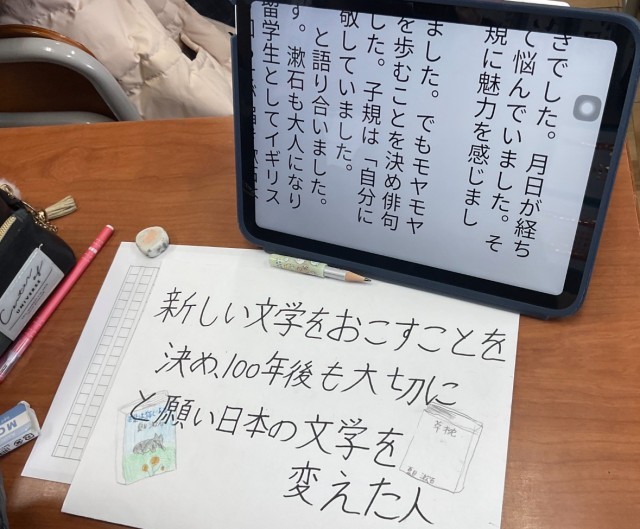 きでした。月日が経ち
て悩んでいました。そ
規に魅力を感じまし
ました。でもモヤモヤ
を歩むことを決め俳句
した。子規は「自分に
敬していました。
と語り合いました。
す。漱石も大人になり
留学生としてイギリス
新しい文学をおこすことを
決め、100年後も大切に
と願い日本の文学を
変えた人
草枕
MO